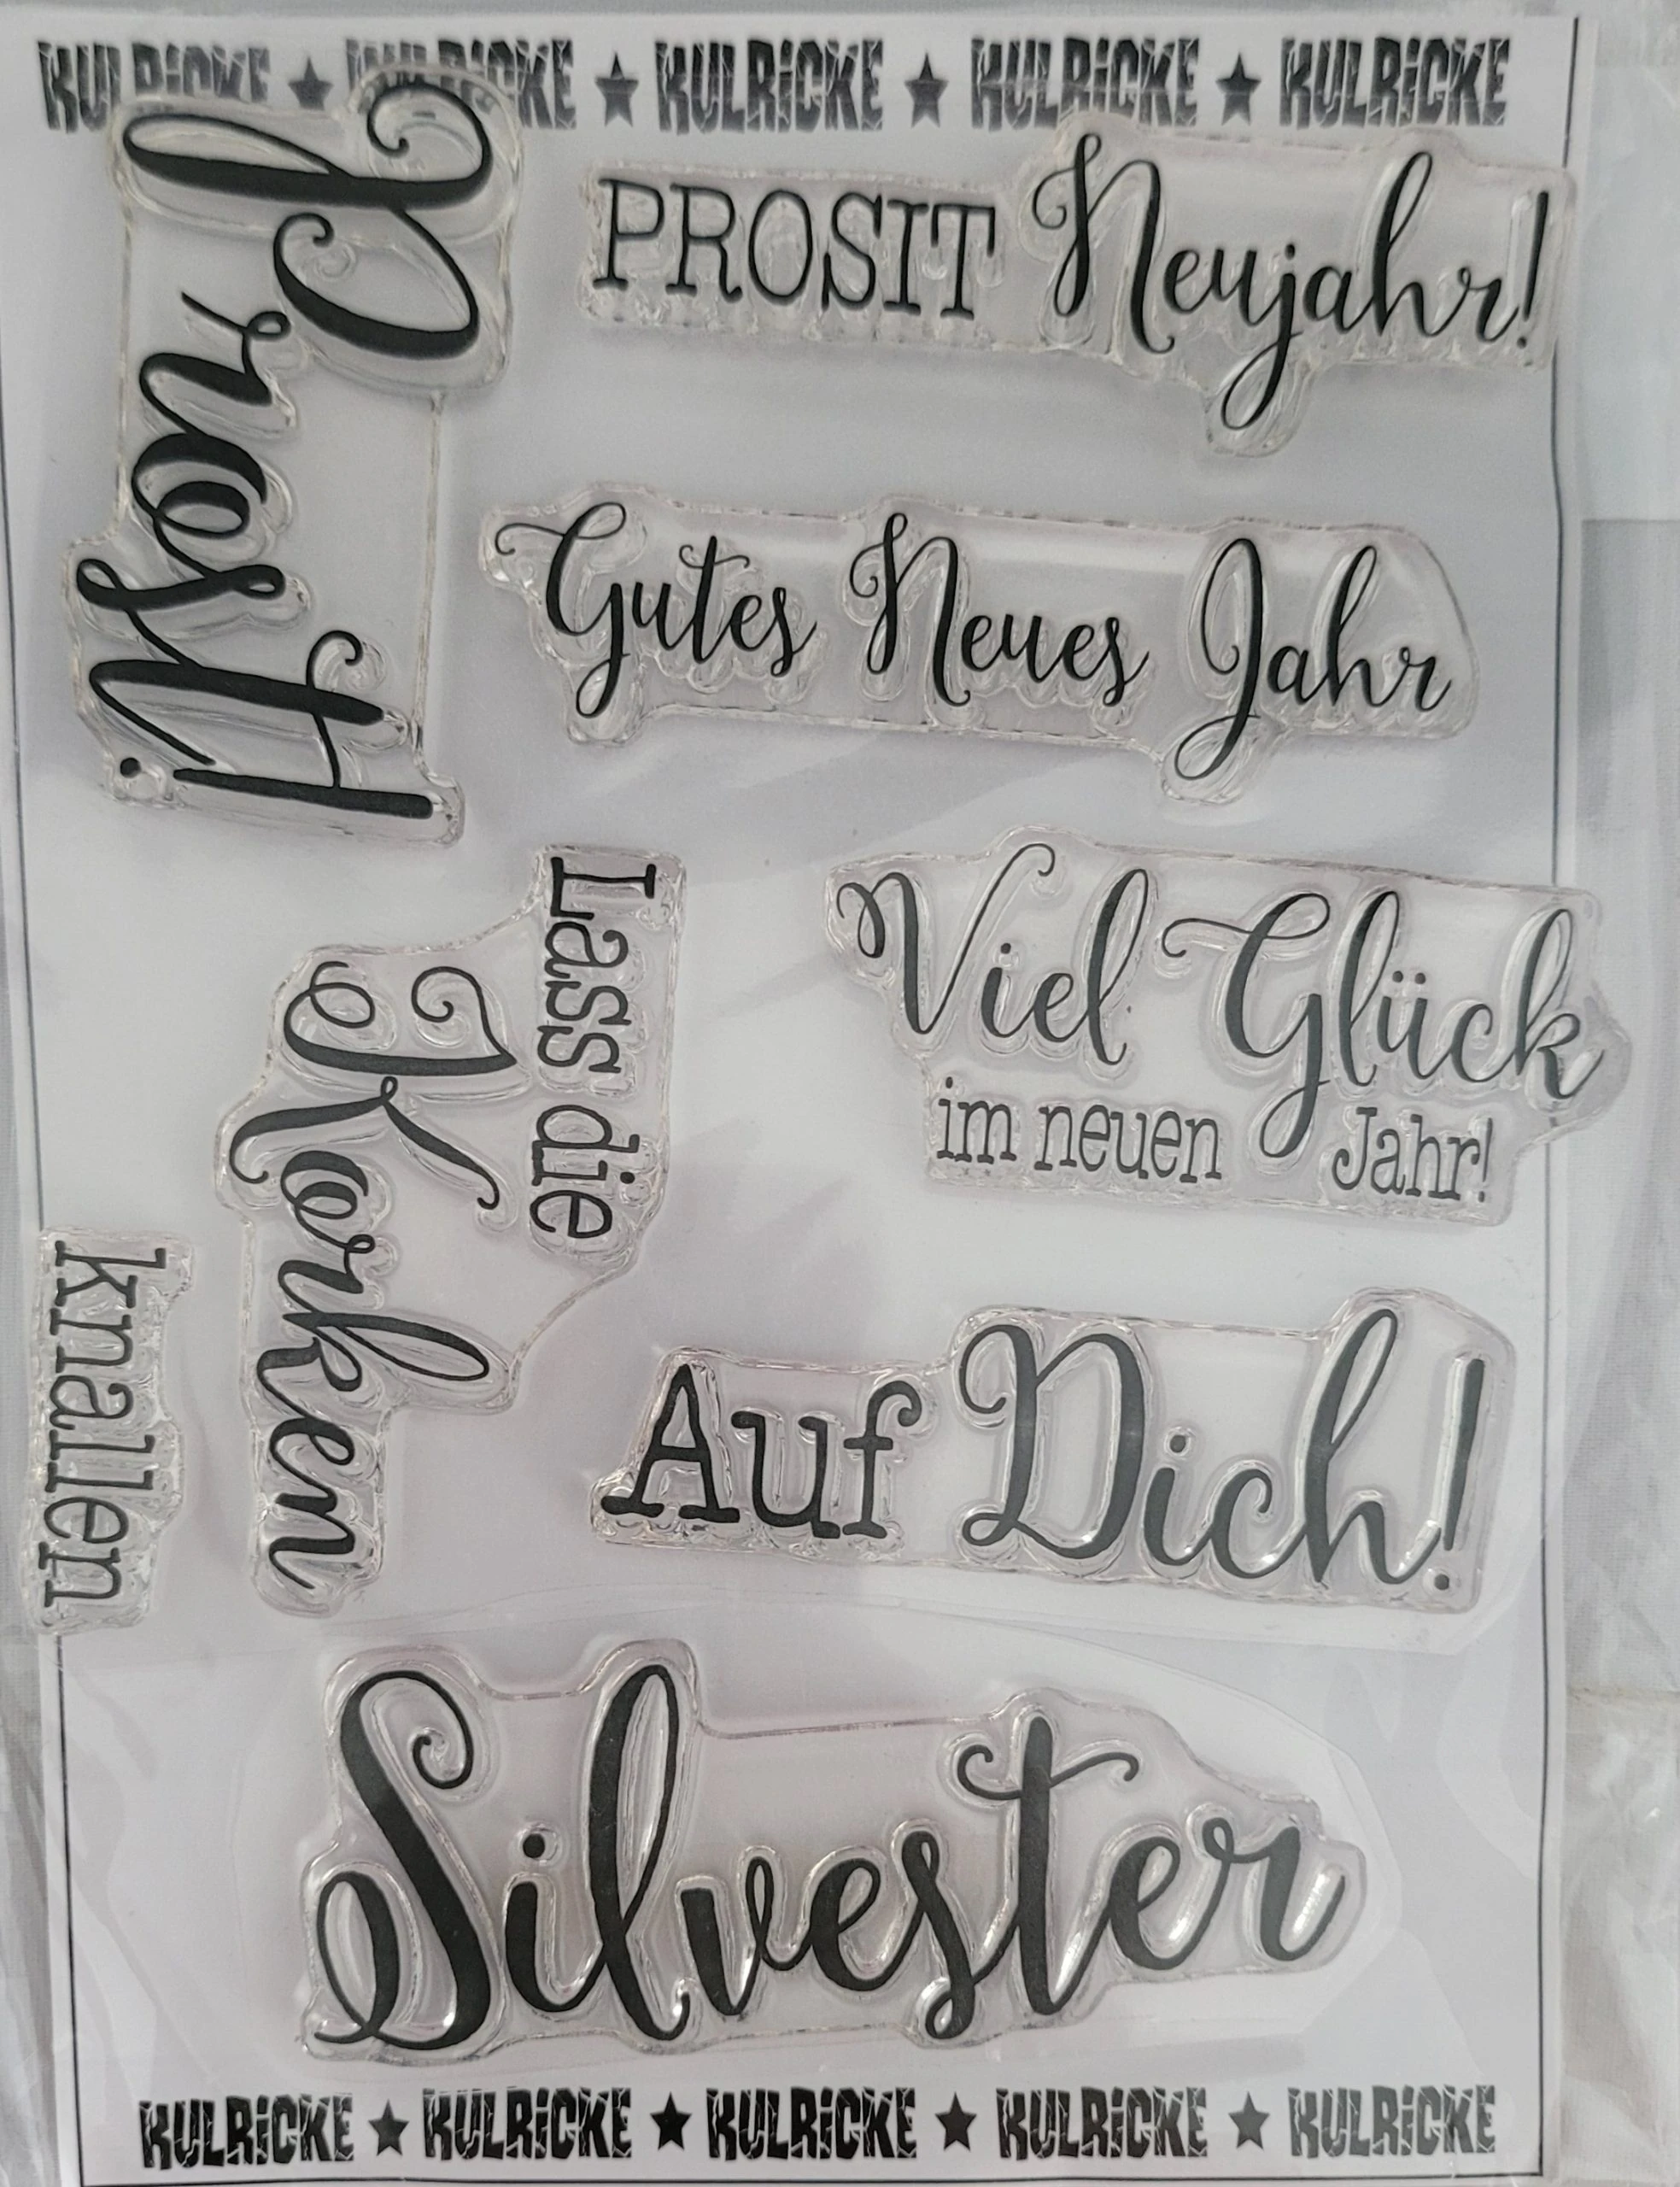 KULRiCKE ★ KULRiCKE ★ KULRiCKE ★ KULRiCKE ★ KULRiCKE
Prost!
PROSIT Neujahr!
Gutes Neues Jahr
Viel Glück
im neuen Jahr!
Lass die
Korken
knallen
Auf Dich!
Silvester
KULRiCKE ★ KULRiCKE ★ KULRiCKE ★ KULRiCKE ★ KULRiCKE